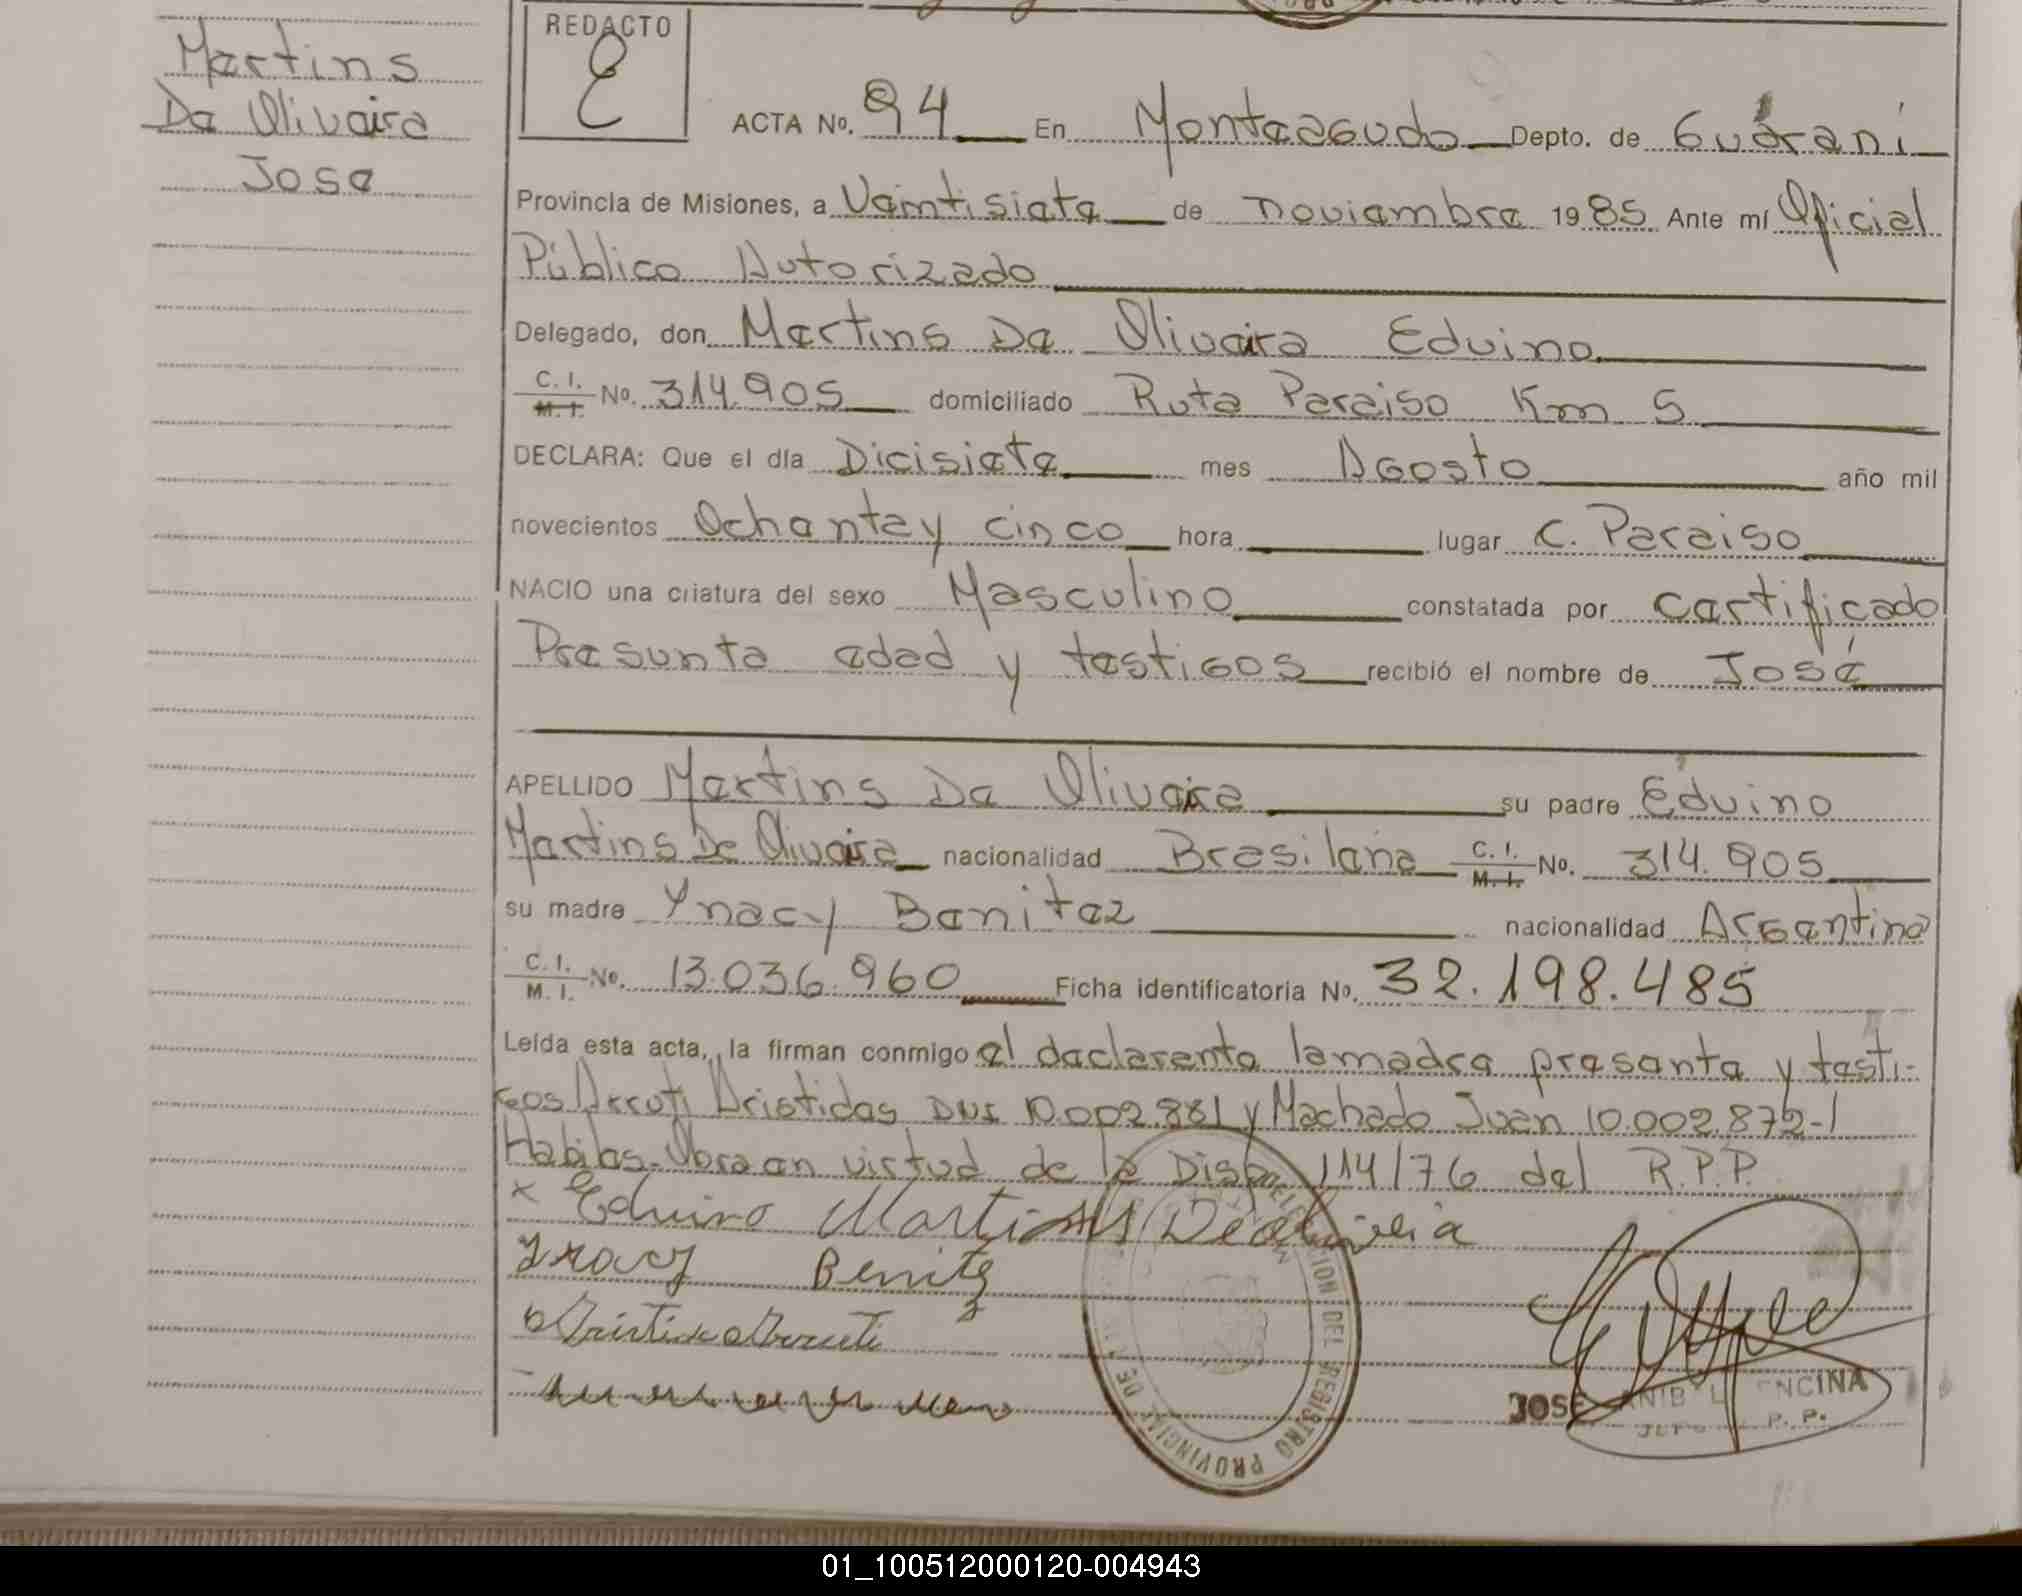 Martins
De Oliveira
Jose
REDACTO
E
ACTA No. 94 En Monteagudo Depto. de Guarani
Provincia de Misiones, a Veintisiete de noviembre 1985 Ante mí Oficial
Público Autorizado
Delegado, don Martins De Oliveira Eduino
C. I. M. I. No. 314.905 domiciliado Ruta Paraiso Km 5
DECLARA: Que el día Dicisiete mes Agosto año mil
novecientos Ochentay cinco hora lugar C. Paraiso
NACIO una criatura del sexo Masculino constatada por certificado
Presunta edad y testigos recibió el nombre de José
APELLIDO Martins De Oliveira su padre Eduino
Martins De Oliveira nacionalidad Brasileña C. I. M. I. No. 314.905
su madre Ynacy Benitez nacionalidad Argentina
C. I. M. I. No. 13.036.960 Ficha identificatoria No. 32.198.485
Leída esta acta, la firman conmigo el declarente la madre presente y testi-
gos Arruti Aristides DNI 10.002.881 y Machado Juan 10.002.872-1
Habiles-Obra en virtud de la Disp. 114/76 del R.P.P.
x Eduino Martins De Oliveia
Iracy Benitez
Aristide Arruti
DELEGACION DEL REGISTRO PROVINCIAL DE
JOSE ANIBAL ENCINA
P. P.
01_100512000120-004943